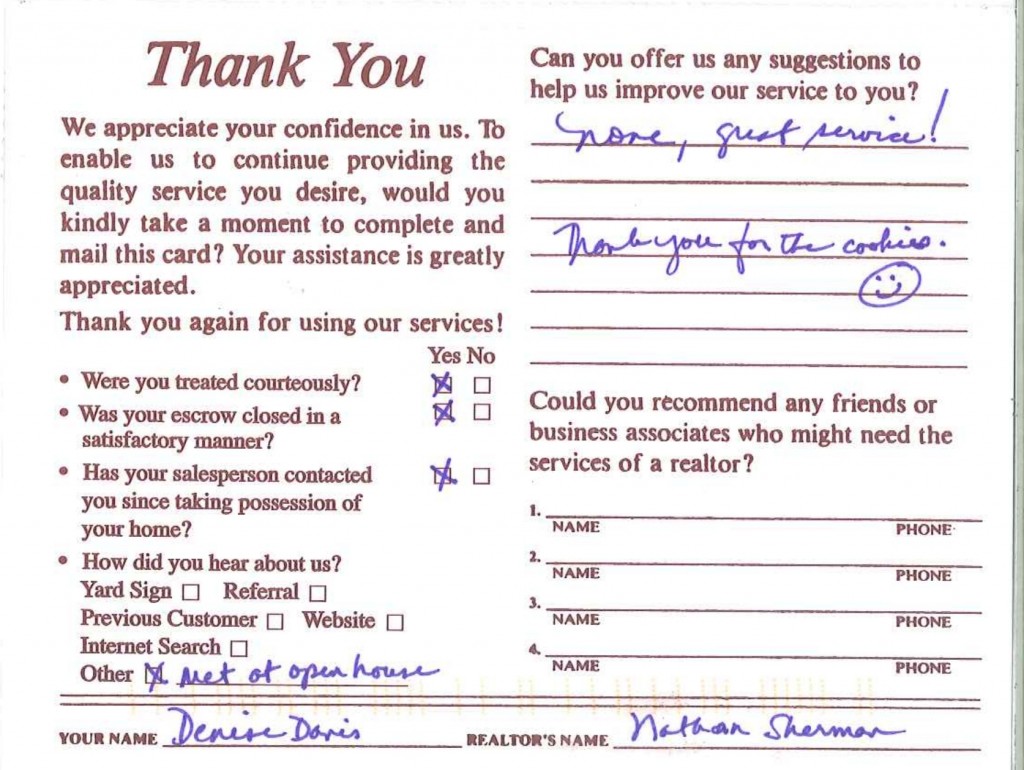 Thank You
We appreciate your confidence in us. To
enable us to continue providing the
quality service you desire, would you
kindly take a moment to complete and
mail this card? Your assistance is greatly
appreciated.
Thank you again for using our services!
Yes No
• Were you treated courteously?
• Was your escrow closed in a
satisfactory manner?
• Has your salesperson contacted
you since taking possession of
your home?
• How did you hear about us?
Yard Sign Referral
Previous Customer Website
Internet Search
Other Met at open house
Can you offer us any suggestions to
help us improve our service to you?
None, great service!
Thank you for the cookies.
Could you recommend any friends or
business associates who might need the
services of a realtor?
1.
NAME PHONE
2.
NAME PHONE
3.
NAME PHONE
4.
NAME PHONE
YOUR NAME Denise Davis REALTOR'S NAME Nathan Sherman